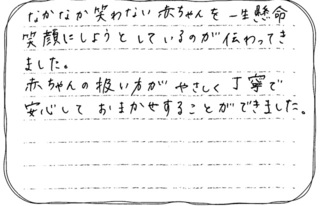 なかなか笑わない赤ちゃんを一生懸命
笑顔にしようとしているのが伝わってき
ました。
赤ちゃんの扱い方がやさしく丁寧で
安心しておまかせすることができました。